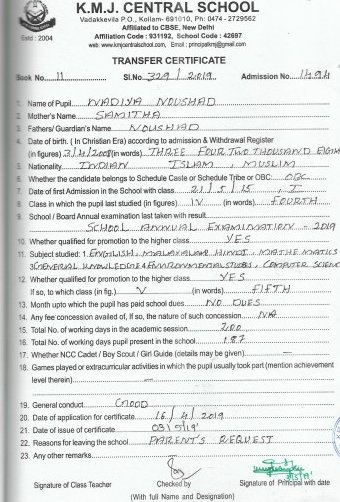 K.M.J. CENTRAL SCHOOL
Vadakkevila P.O., Kollam- 691010, Ph: 0474 - 2729562
Affiliated to CBSE, New Delhi
Estd : 2004
Affiliation Code : 931192, School Code : 42697
web: www.kmjcentralschool.com, Email : principalkmj@gmail.com
TRANSFER CERTIFICATE
Book No. 11 Sl.No. 329 / 2019 Admission No. 1494
1. Name of Pupil NADIYA NOUSHAD
2. Mother's Name SAMITHA
3. Fathers/ Guardian's Name NOUSHAD
4. Date of birth. ( In Christian Era) according to admission & Withdrawal Register
(in figures) 3/4/2008 (in words) THREE FOUR TWO THOUSAND EIGHT
5. Nationality INDIAN ISLAM, MUSLIM
6. Whether the candidate belongs to Schedule Caste or Schedule Tribe or OBC: OBC
7. Date of first Admission in the School with class 21/5/15, I
8. Class in which the pupil last studied (in figures) IV (in words) FOURTH
9. School / Board Annual examination last taken with result
SCHOOL ANNUAL EXAMINATION - 2019
10. Whether qualified for promotion to the higher class YES
11. Subject studied : 1 ENGLISH, MALAYALAM, HINDI, MATHEMATICS
GENERAL KNOWLEDGE & ENVIRONMENTAL STUDIES, COMPUTER SCIENCE
12. Whether qualified for promotion to the higher class YES
If so, to which class (in fig.) V (in words) FIFTH
13. Month upto which the pupil has paid school dues NO DUES
14. Any fee concession availed of, If so, the nature of such concession NA
15. Total No. of working days in the academic session 200
16. Total No. of working days pupil present in the school 187
17. Whether NCC Cadet / Boy Scout / Girl Guide (details may be given) —
18. Games played or extracurricular activities in which the pupil usually took part (mention achievement
level therein) —
19. General conduct GOOD
20. Date of application for certificate 16/4/2019
21. Date of issue of certificate 03/5/19
22. Reasons for leaving the school PARENT'S REQUEST
23. Any other remarks
Signature of Class Teacher Checked by Signature of Principal with date
(With full Name and Designation)